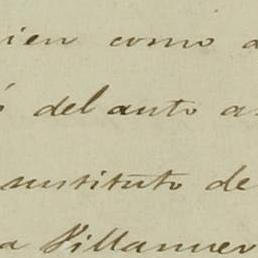 bien como a
ó del auto a
sustituto de
a Villanuev